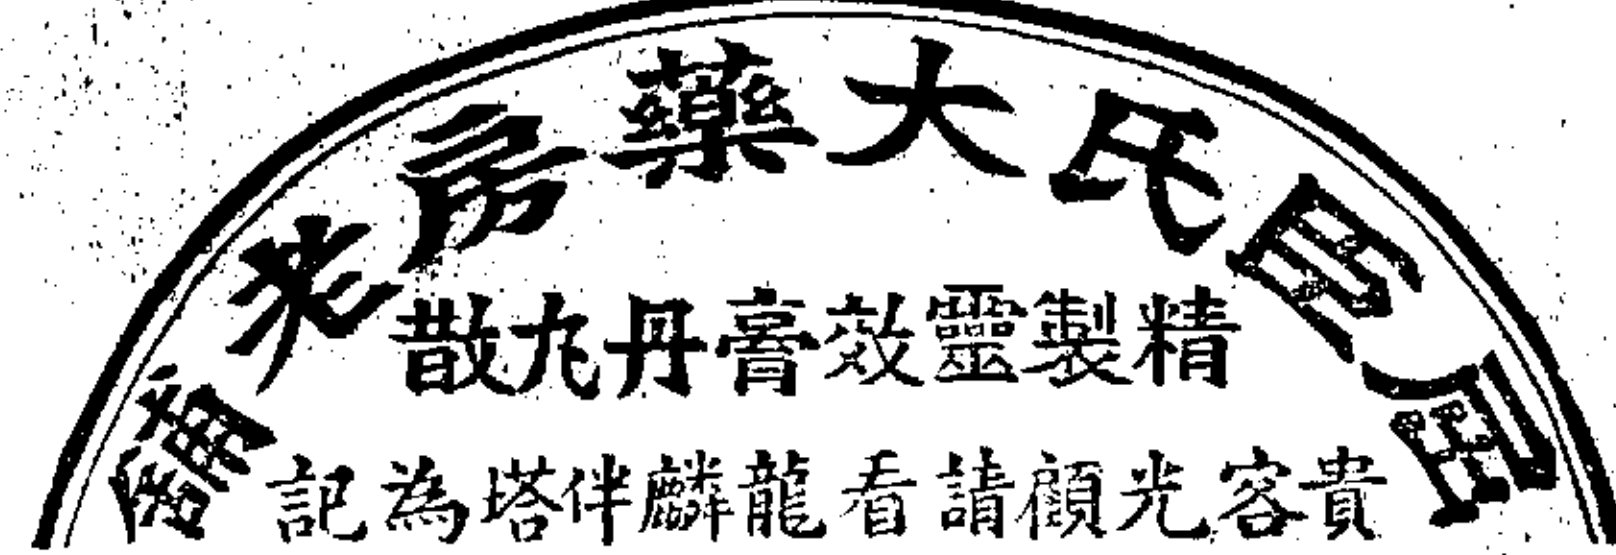 氏大藥房老舖
精製靈效膏丹丸散
貴客光顧請看龍麟伴塔為記